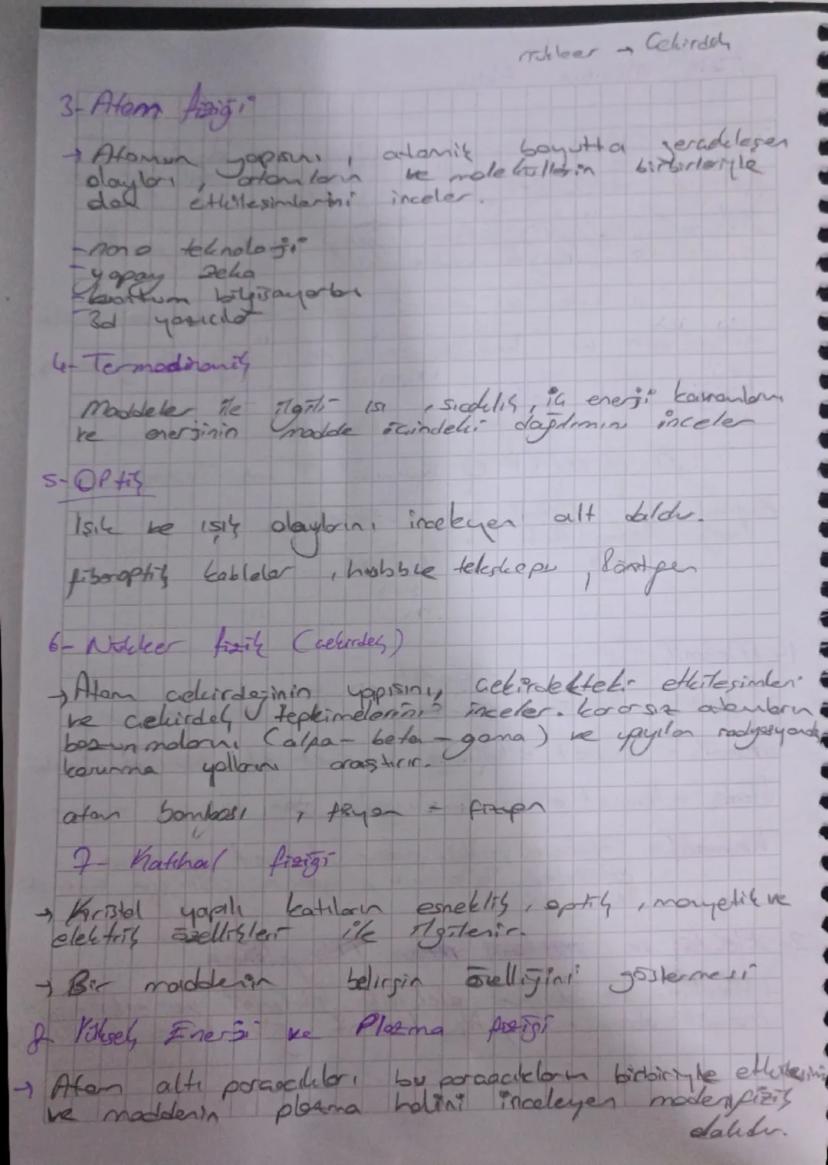 nükleer → Çekirdek
3- Atom fiziği
→ Atomun yapısını, atomik boyutta gerçekleşen
olayları, atomların ve moleküllerin birbirleriyle
olan etkileşimlerini inceler.
- nano teknoloji
- yapay zeka
- kuantum bilgisayarları
- 3d yazıcılar
4- Termodinamik
Maddeler ile ilgili ısı, sıcaklık, iç enerji kavramlarını
ve enerjinin madde içindeki dağılımını inceler
5- Optik
Işık ve ışık olaylarını inceleyen alt daldır.
fiberoptik kablolar, hubble teleskopu, Röntgen
6- Nükleer fizik (çekirdek)
→ Atom çekirdeğinin yapısını, çekirdekteki etkileşimleri
ve çekirdek tepkimelerini inceler. kararsız atomların
bozunmalarını (alfa - beta - gama) ve yayılan radyasyondan
korunma yollarını araştırır.
atom bombası, füzyon - fizyon
7- Katıhal fiziği
→ Kristal yapılı katıların esneklik, optik, manyetik ve
elektrik özellikleri ile ilgilenir.
→ Bir maddenin belirgin özelliğini göstermesi
8 Yüksek Enerji ve Plazma fiziği
→ Atom altı parçacıkları, bu parçacıkların birbiriyle etkileşimini
ve maddenin plazma halini inceleyen modern fizik
dalıdır.